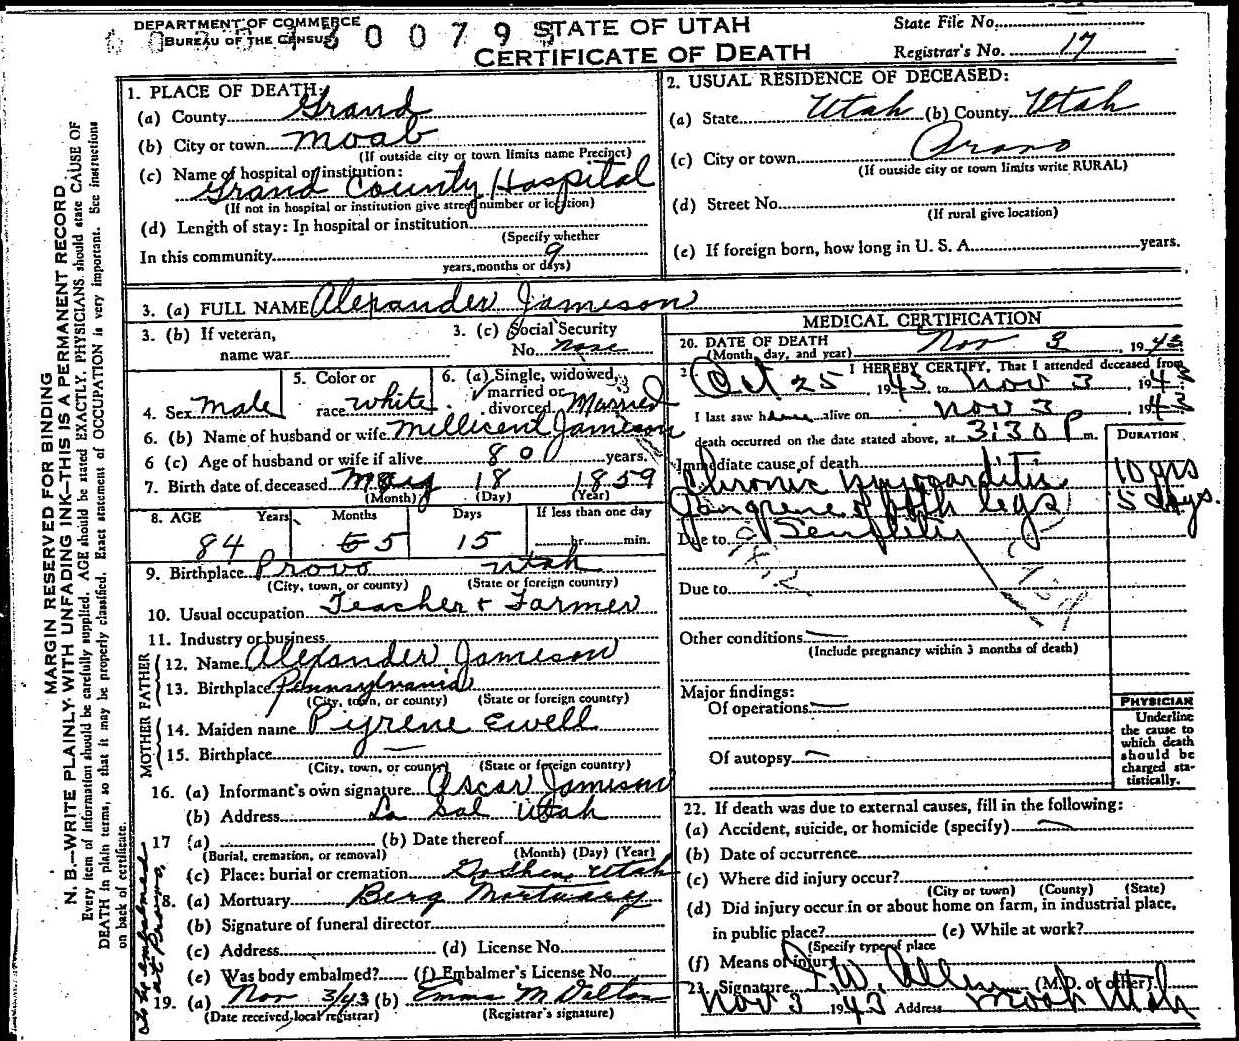 DEPARTMENT OF COMMERCE
BUREAU OF THE CENSUS
0 0 7 9
STATE OF UTAH
CERTIFICATE OF DEATH
State File No.
Registrar's No. 17
MARGIN RESERVED FOR BINDING
N. B.—WRITE PLAINLY WITH UNFADING INK—THIS IS A PERMANENT RECORD
Every item of information should be carefully supplied. AGE should be stated EXACTLY. PHYSICIANS should state CAUSE OF
DEATH in plain terms, so that it may be properly classified. Exact statement of OCCUPATION is very important. See instructions
on back of certificate.
1. PLACE OF DEATH:
(a) County Grand
(b) City or town Moab
(If outside city or town limits name Precinct)
(c) Name of hospital or institution:
Grand County Hospital
(If not in hospital or institution give street number or location)
(d) Length of stay: In hospital or institution
(Specify whether
In this community 9
years, months or days)
2. USUAL RESIDENCE OF DECEASED:
(a) State Utah (b) County Utah
(c) City or town Provo
(If outside city or town limits write RURAL)
(d) Street No.
(If rural give location)
(e) If foreign born, how long in U. S. A. years.
3. (a) FULL NAME Alexander Jameson
3. (b) If veteran,
name war
3. (c) Social Security
No. none
4. Sex male
5. Color or
race white
6. (a) Single, widowed,
married or
divorced Married
6. (b) Name of husband or wife Millicent Jameson
6 (c) Age of husband or wife if alive 80 years.
7. Birth date of deceased May 18 1859
(Month) (Day) (Year)
8. AGE Years Months Days If less than one day
84 5 15 hr. min.
9. Birthplace Provo Utah
(City, town, or county) (State or foreign country)
10. Usual occupation Teacher & Farmer
11. Industry or business
FATHER
12. Name Alexander Jameson
13. Birthplace Pennsylvania
(City, town, or county) (State or foreign country)
MOTHER
14. Maiden name Pyrene Ewell
15. Birthplace —
(City, town, or county) (State or foreign country)
16. (a) Informant's own signature Oscar Jameson
(b) Address La Sal Utah
17 (a) (b) Date thereof
(Burial, cremation, or removal) (Month) (Day) (Year)
(c) Place: burial or cremation Goshen, Utah
18. (a) Mortuary Berg Mortuary
(b) Signature of funeral director
(c) Address (d) License No.
(e) Was body embalmed? (f) Embalmer's License No.
to be embalmed
at Provo,
19. (a) Nov 3/43 (b) Emma M Dalton
(Date received, local registrar) (Registrar's signature)
MEDICAL CERTIFICATION
20. DATE OF DEATH
(Month, day, and year) Nov 3, 1943
I HEREBY CERTIFY, That I attended deceased from
Oct 25, 1943 to Nov 3, 1943
I last saw h alive on Nov 3 1943
death occurred on the date stated above, at 3:30 P m.
DURATION
Immediate cause of death
Chronic myocarditis 10 yrs
Gangrene of both legs 5 days.
Due to Senility
Due to
Other conditions —
(Include pregnancy within 3 months of death)
Major findings:
Of operations —
Of autopsy —
PHYSICIAN
Underline
the cause to
which death
should be
charged sta-
tistically.
22. If death was due to external causes, fill in the following:
(a) Accident, suicide, or homicide (specify) —
(b) Date of occurrence
(c) Where did injury occur?
(City or town) (County) (State)
(d) Did injury occur in or about home on farm, in industrial place,
in public place? (e) While at work?
(Specify type of place
(f) Means of injury
23. Signature I. W. Allen (M.D. or other)
Nov 3 1943 Address Moab Utah